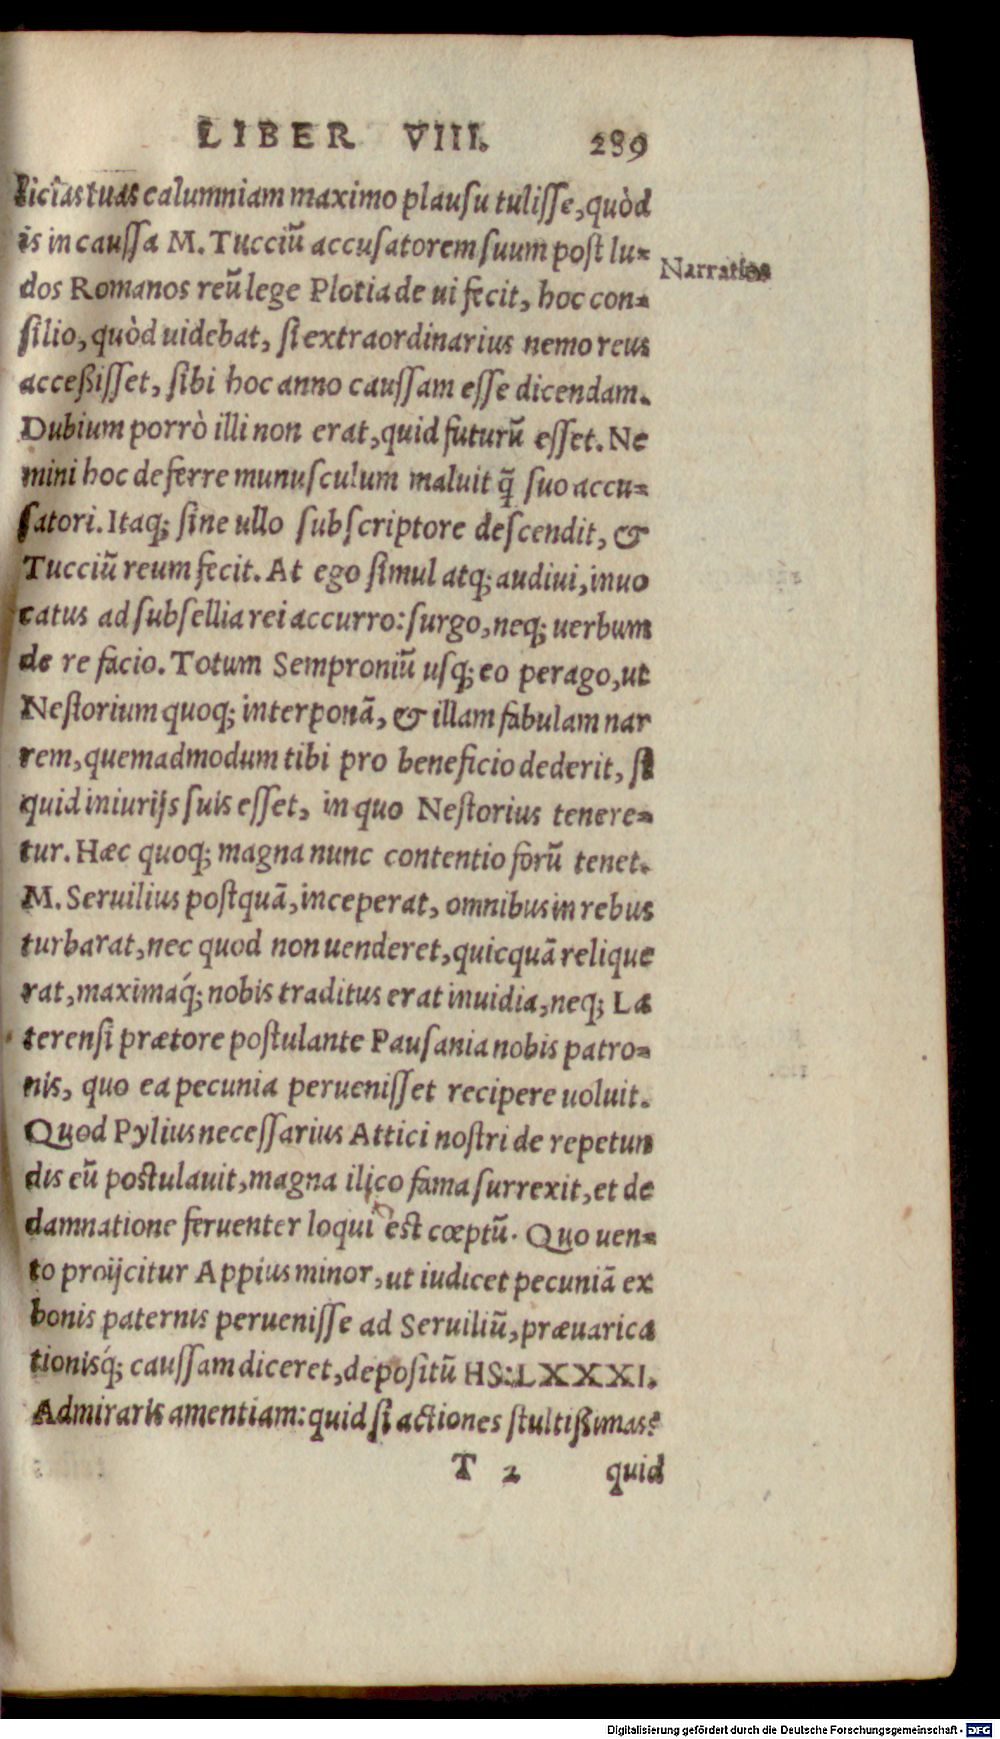 LIBER VIII. 289
licias tuas calumniam maximo plausu tulisse, quòd
is in caussa M. Tucciū accusatorem suum post lu-
Narratio
dos Romanos reū lege Plotia de ui fecit, hoc con-
silio, quòd uidebat, si extraordinarius nemo reus
acceßisset, sibi hoc anno caussam esse dicendam.
Dubium porrò illi non erat, quid futurū esset. Ne
mini hoc deferre munusculum maluit q̃ suo accu-
satori. Itaq; sine ullo subscriptore descendit, &
Tucciū reum fecit. At ego simul atq; audiui, inuo
catus ad subsellia rei accurro: surgo, neq; uerbum
de re facio. Totum Semproniū usq; eo perago, ut
Nestorium quoq; interponā, & illam fabulam nar
rem, quemadmodum tibi pro beneficio dederit, si
quid iniurijs suis esset, in quo Nestorius tenere-
tur. Hæc quoq; magna nunc contentio forū tenet.
M. Seruilius postquā, inceperat, omnibus in rebus
turbarat, nec quod non uenderet, quicquā relique
rat, maximaq́; nobis traditus erat inuidia, neq; La
terensi prætore postulante Pausania nobis patro-
nis, quo ea pecunia peruenisset recipere uoluit.
Quod Pylius necessarius Attici nostri de repetun
dis eū postulauit, magna ilico fama surrexit, et de
damnatione feruenter loqui est cœptū. Quo uen-
to proijcitur Appius minor, ut iudicet pecuniā ex
bonis paternis peruenisse ad Seruiliū, præuarica
tionisq́; caussam diceret, depositū HS: LXXXI.
Admiraris amentiam: quid si actiones stultißimas?
T 2 quid
Digitalisierung gefördert durch die Deutsche Forschungsgemeinschaft - DFG